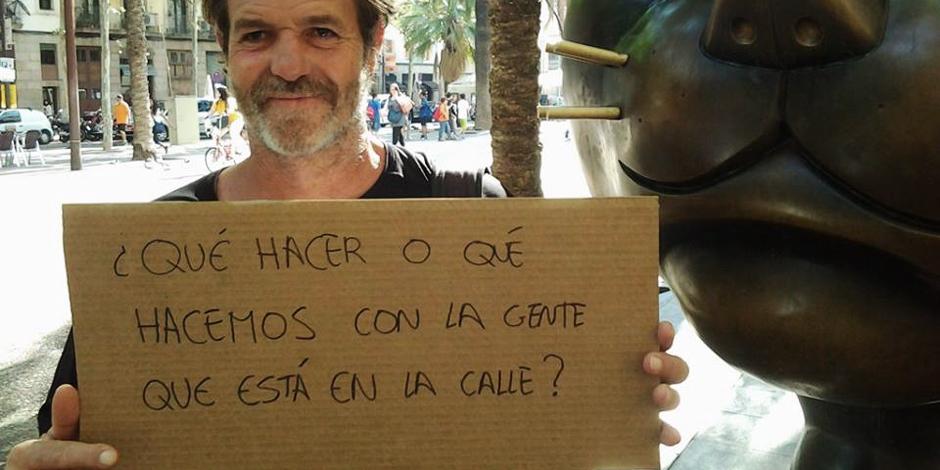 ¿QUÉ HACER O QUÉ
HACEMOS CON LA GENTE
QUE ESTÁ EN LA CALLE?